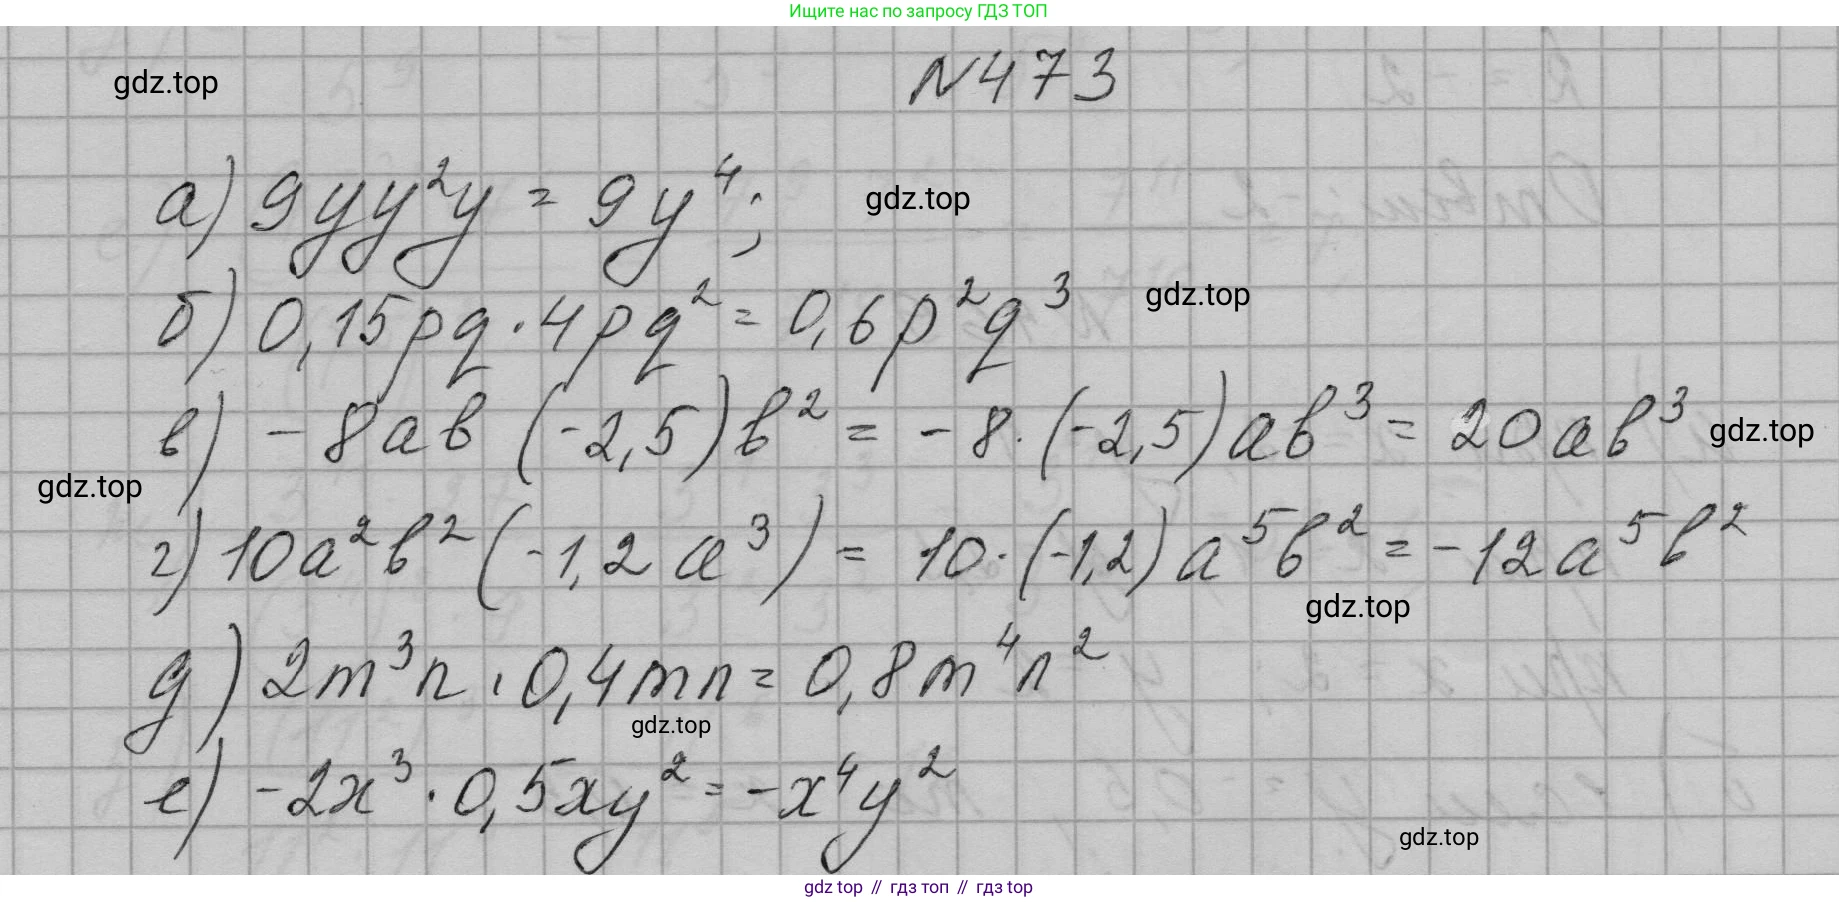 Ищите нас по запросу ГДЗ ТОП
gdz.top
№473
а) 9yyy²y = 9y⁴;
gdz.top
б) 0,15pq · 4pq² = 0,6p²q³
gdz.top
в) -8ab (-2,5)b² = -8·(-2,5)ab³ = 20ab³
gdz.top
gdz.top
г) 10a²b² (-1,2a³) = 10·(-1,2)a⁵b² = -12a⁵b²
gdz.top
д) 2m³n · 0,4mn = 0,8m⁴n²
gdz.top
е) -2x³ · 0,5xy² = -x⁴y²
gdz.top
gdz top // гдз топ // гдз top